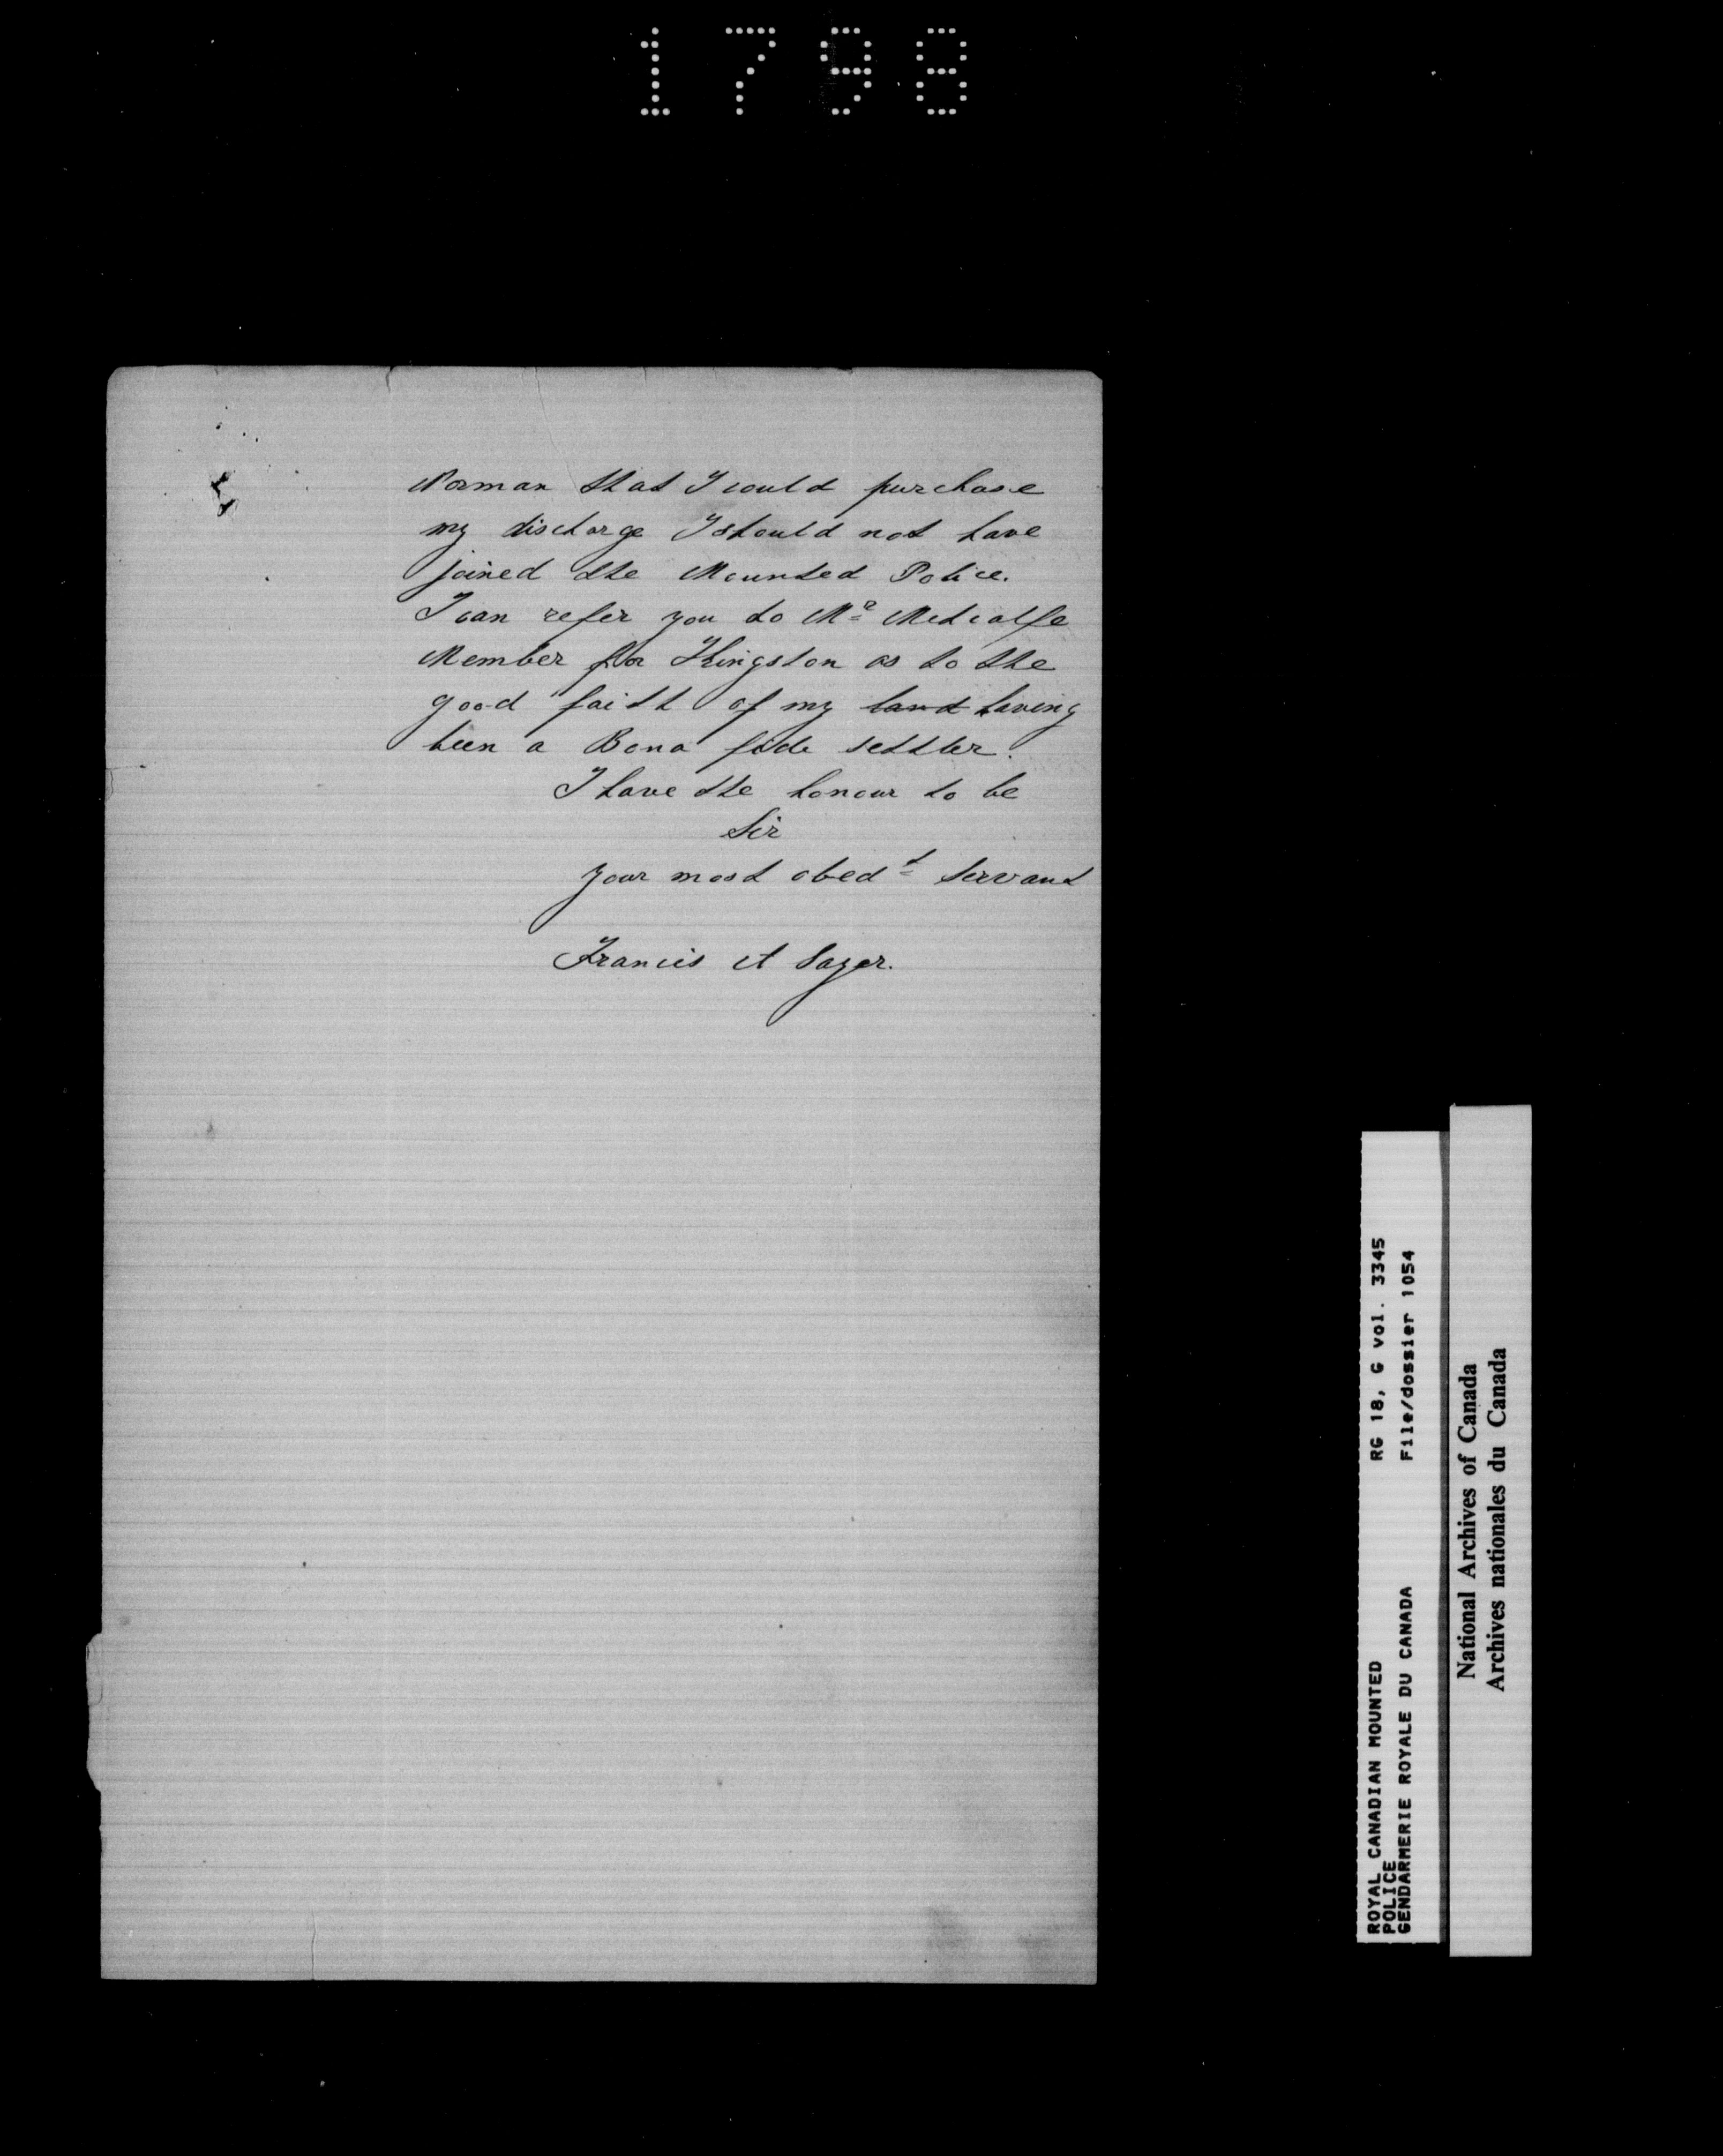 1798
Norman that I could purchase
my discharge I should not have
joined the Mounted Police.
I can refer you to Mr Metcalfe
Member for Kingston as to the
good faith of my ~~land~~ having
been a Bona fide settler.
I have the honour to be
Sir
your most obedt servant
Francis A Sayer.
ROYAL CANADIAN MOUNTED RG 18, G vol. 3345
POLICE
GENDARMERIE ROYALE DU CANADA File/dossier 1054
National Archives of Canada
Archives nationales du Canada